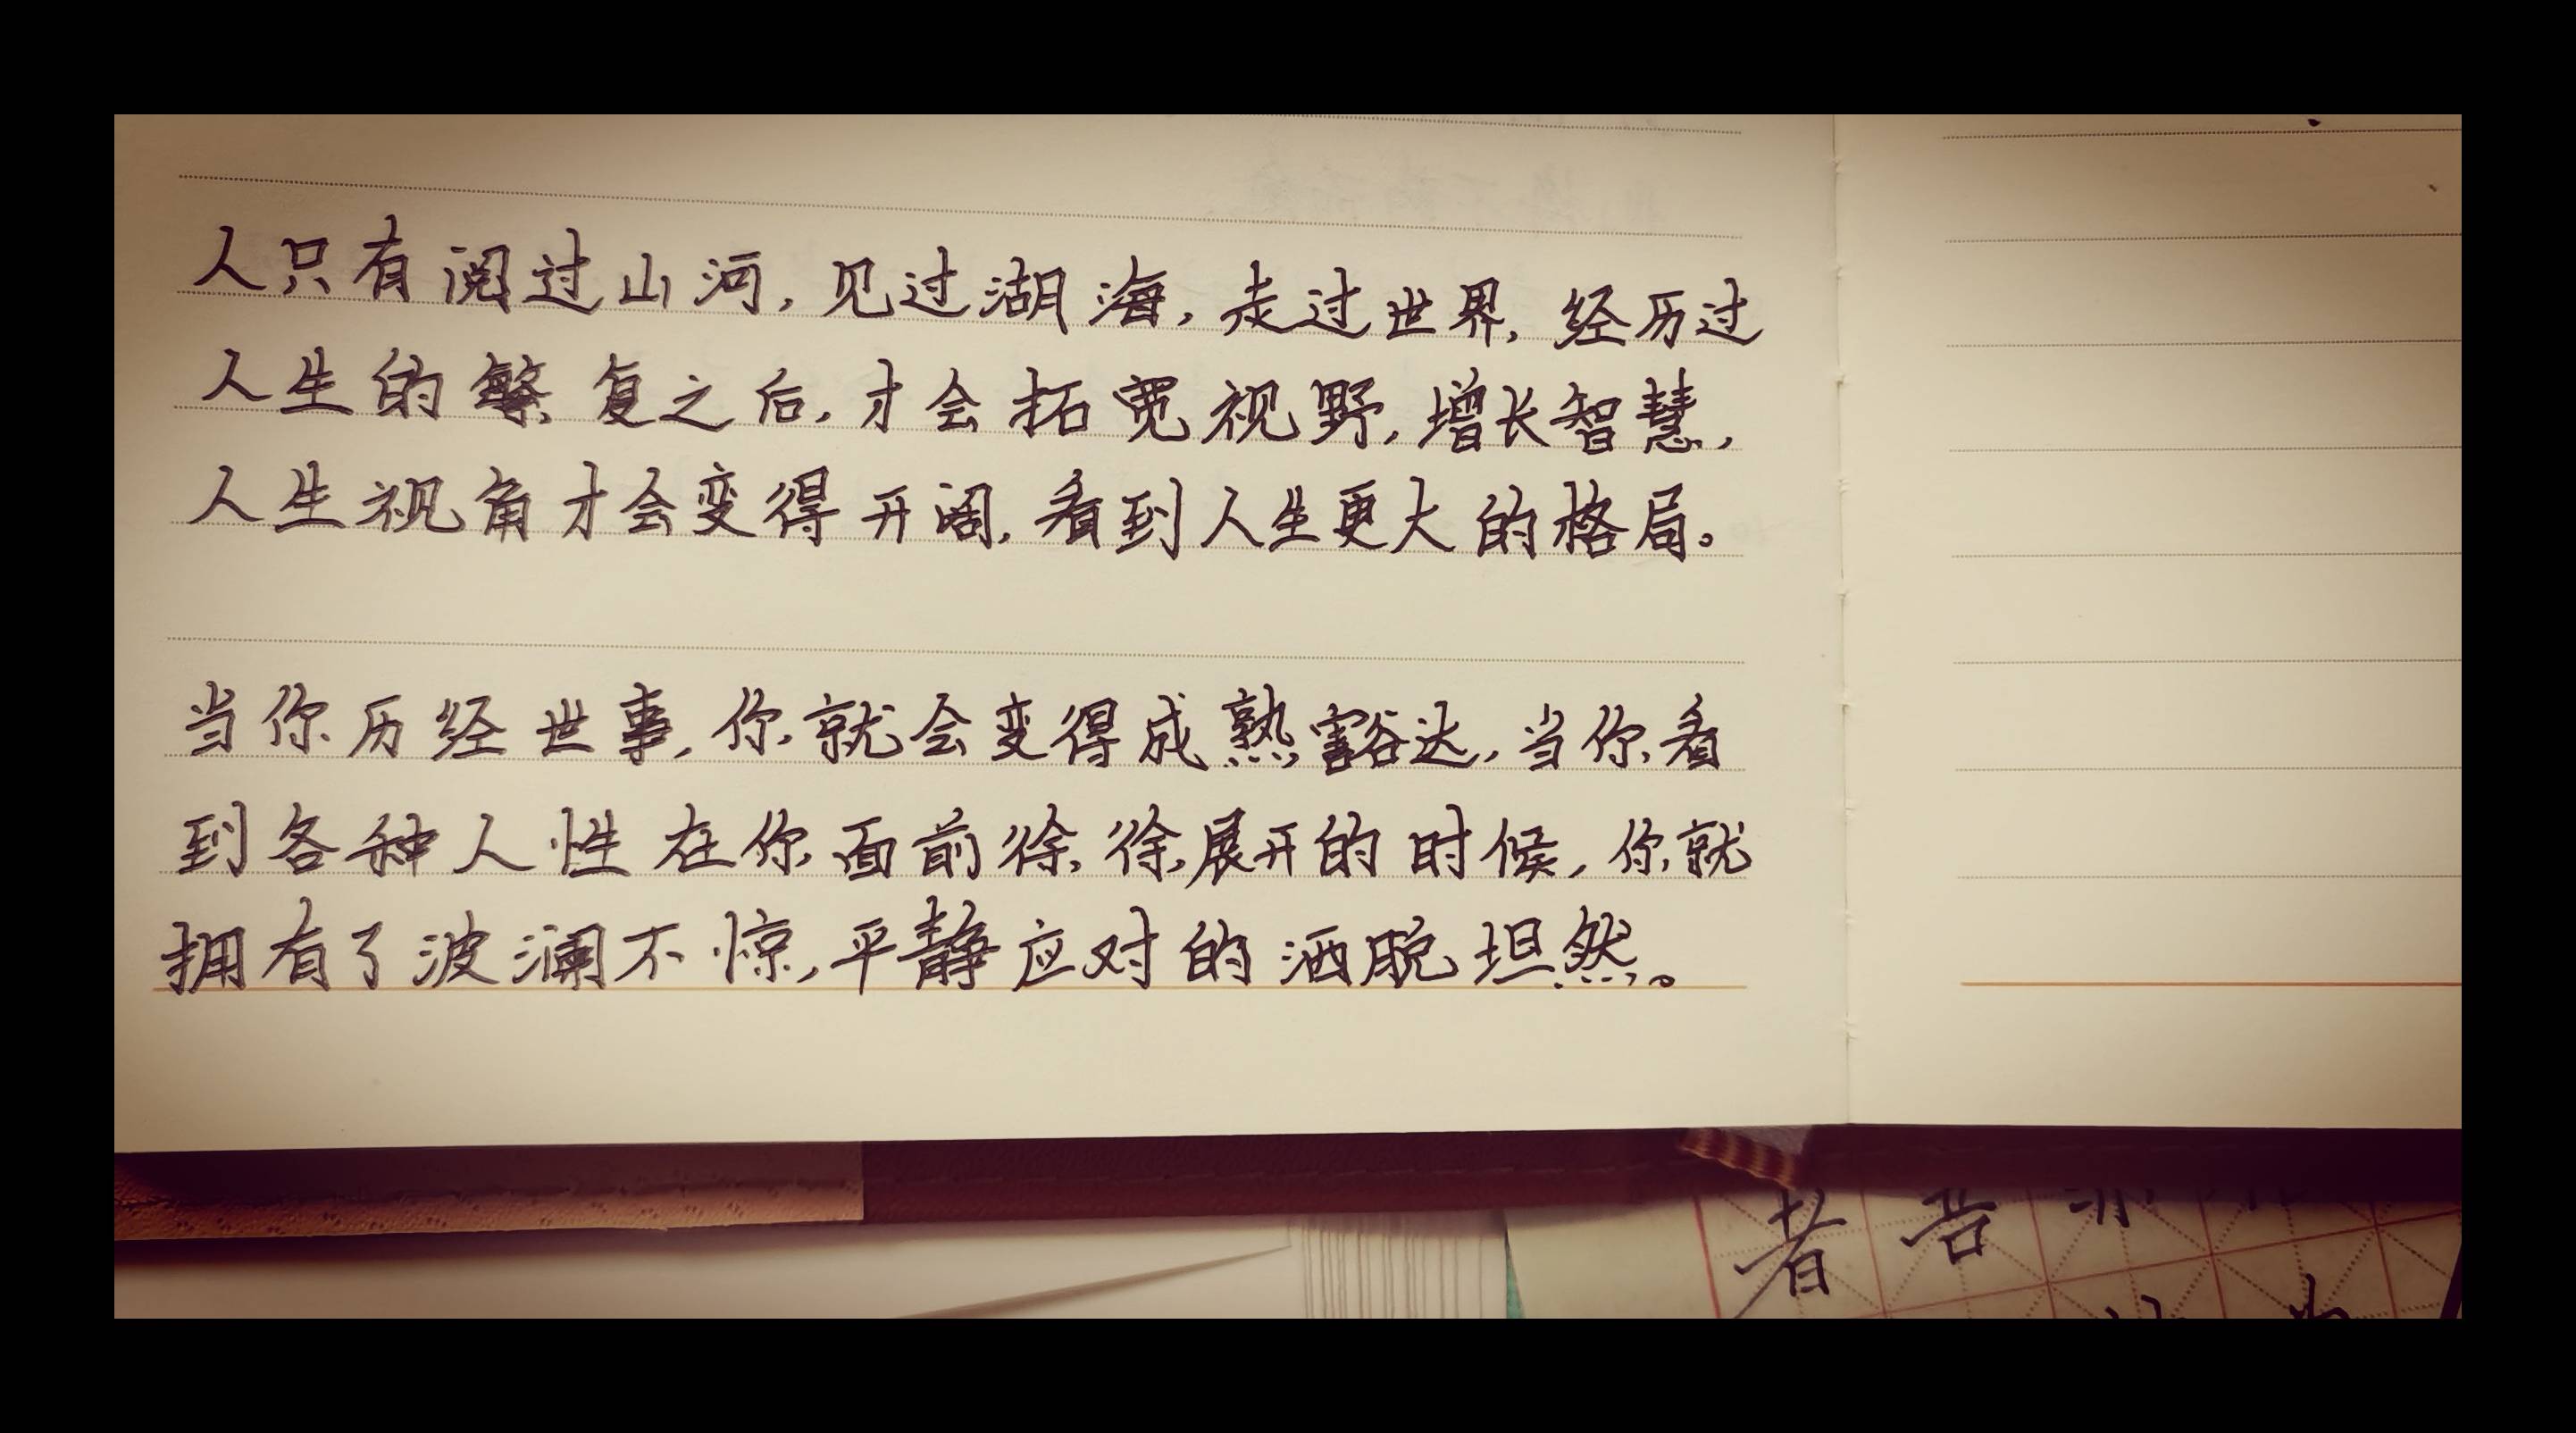 人只有阅过山河,见过湖海,走过世界,经历过
人生的繁复之后,才会拓宽视野,增长智慧,
人生视角才会变得开阔,看到人生更大的格局。
当你历经世事,你就会变得成熟豁达,当你看
到各种人性在你面前徐徐展开的时候,你就
拥有了波澜不惊,平静应对的洒脱坦然。
者吾